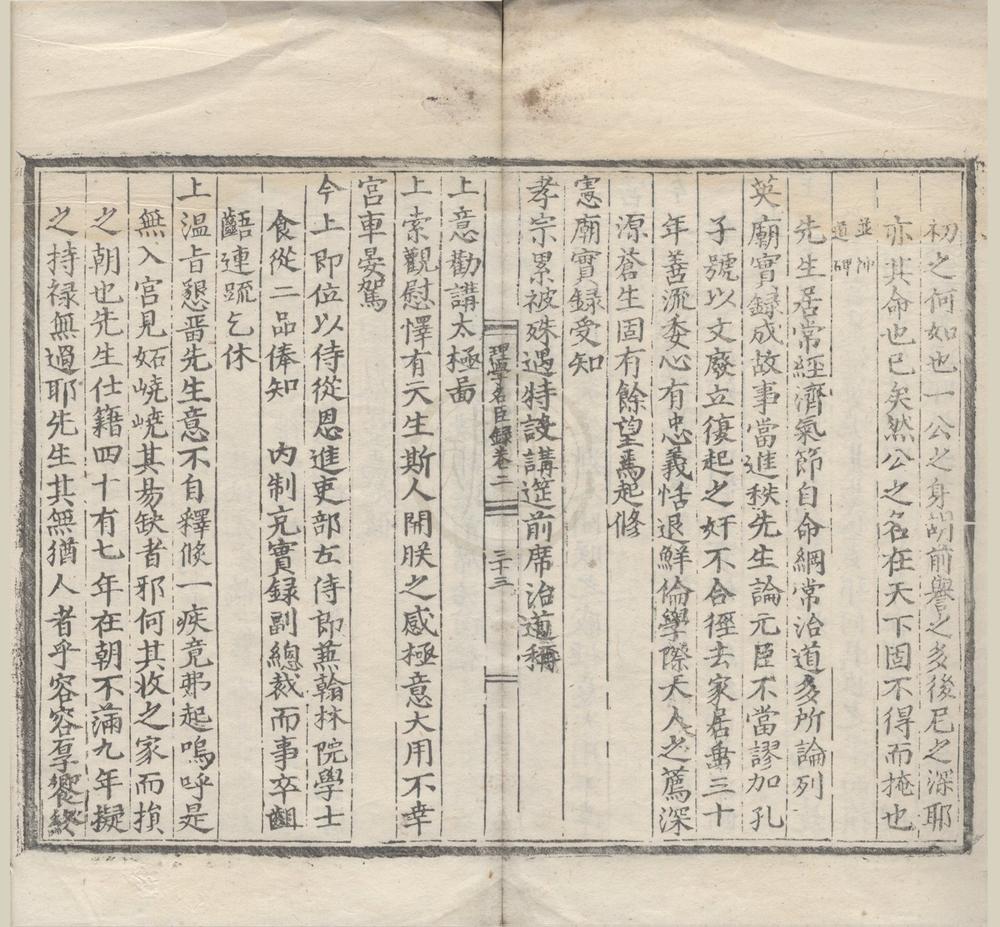 初之何如也一公之身胡前譽之多後尼之深耶
亦其命也已矣然公之名在天下固不得而掩也
並沖
道碑
先生居常經濟氣節自命綱常治道多所論列
英廟實録成故事當進秩先生論元臣不當謬加孔
子號以文廢立復起之奸不合徑去家居垂三十
年善流委心有忠義恬退鮮倫學際天人之薦深
源蒼生固有餘望焉起修
憲廟實録受知
孝宗累被殊遇特設講筵前席治道稱
理學名臣録卷二
三十三
上意勸講太極啚
上索觀慰懌有天生斯人開朕之感極意大用不幸
宮車晏駕
今上即位以侍從恩進吏部左侍郎兼翰林院學士
食從二品俸知 内制充實録副總裁而事卒齟
齬連䟽乞休
上温旨懇畱先生意不自釋倐一疾竟弗起嗚呼是
無入宮見妬嶢嶢其易缺者邪何其收之家而損
之朝也先生仕籍四十有七年在朝不滿九年擬
之持禄無過耶先生其無猶人者乎容容厚饗終